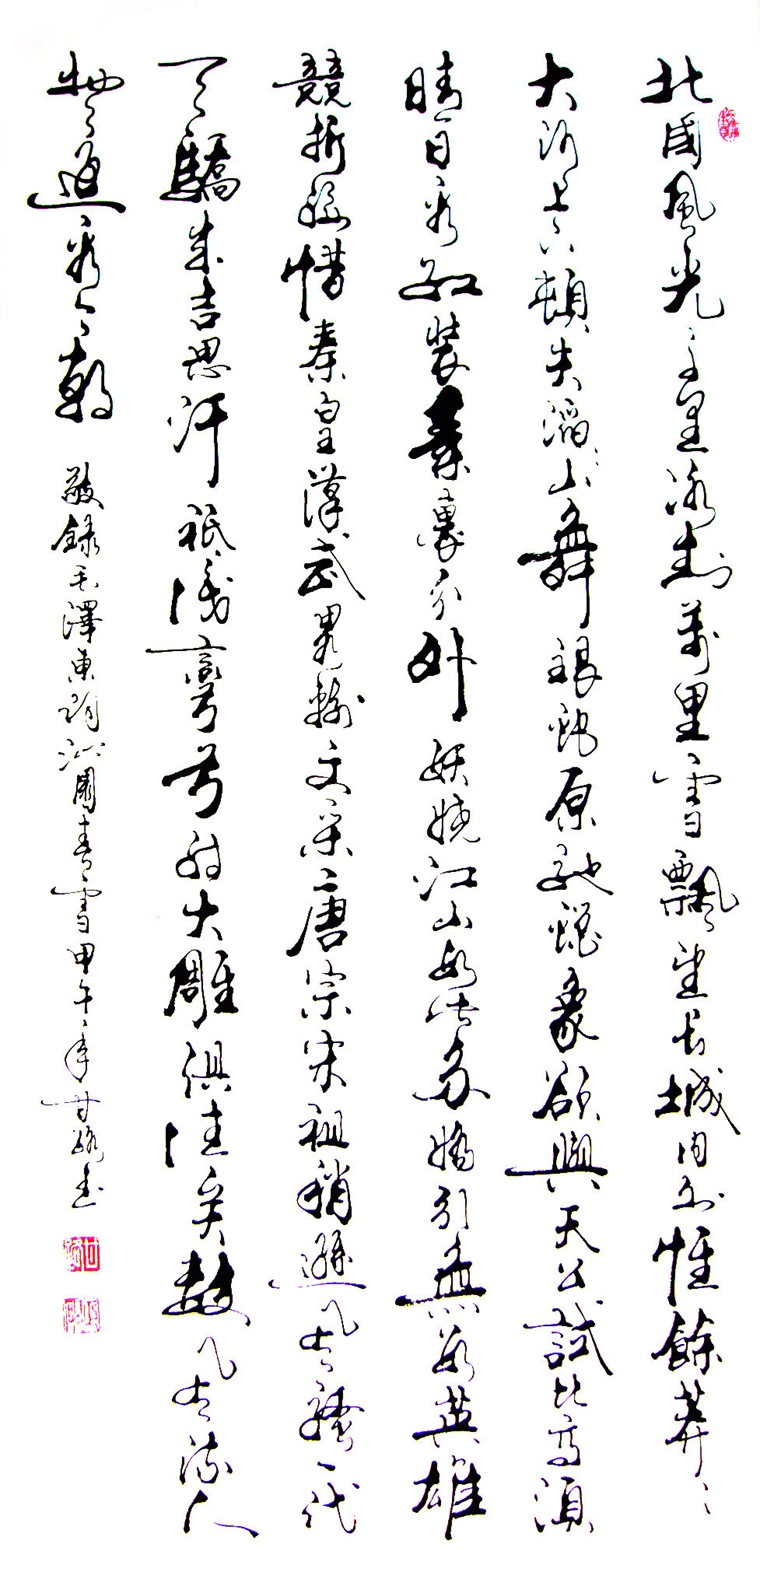 北國風光千里冰封萬里雪飄望長城內外惟餘莽々
大河上下頓失滔々山舞銀蛇原馳蠟象欲與天公試比高須
晴日看紅裝素裹分外妖嬈江山如此多嬌引無數英雄
競折腰惜秦皇漢武畧輸文采唐宗宋祖稍遜風騷一代
天驕成吉思汗祇識彎弓射大雕俱往矣數風流人
物還看今朝 敬錄毛澤東詞沁園春雪甲午年甘書